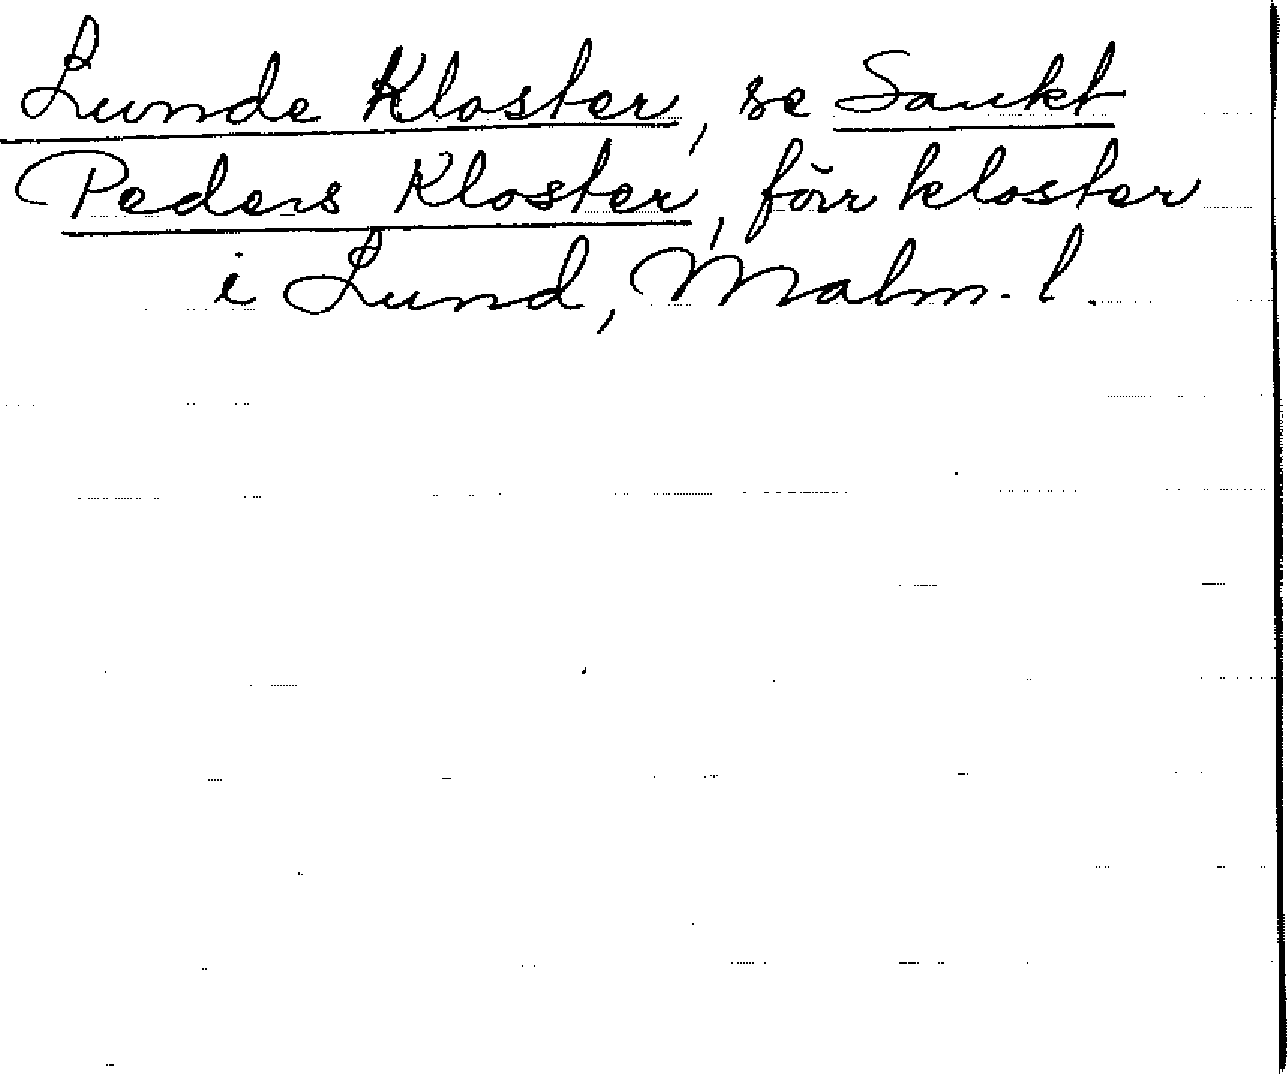 Lunde Kloster, se Sankt
Peders Kloster, förr kloster
i Lund, Malm. l.